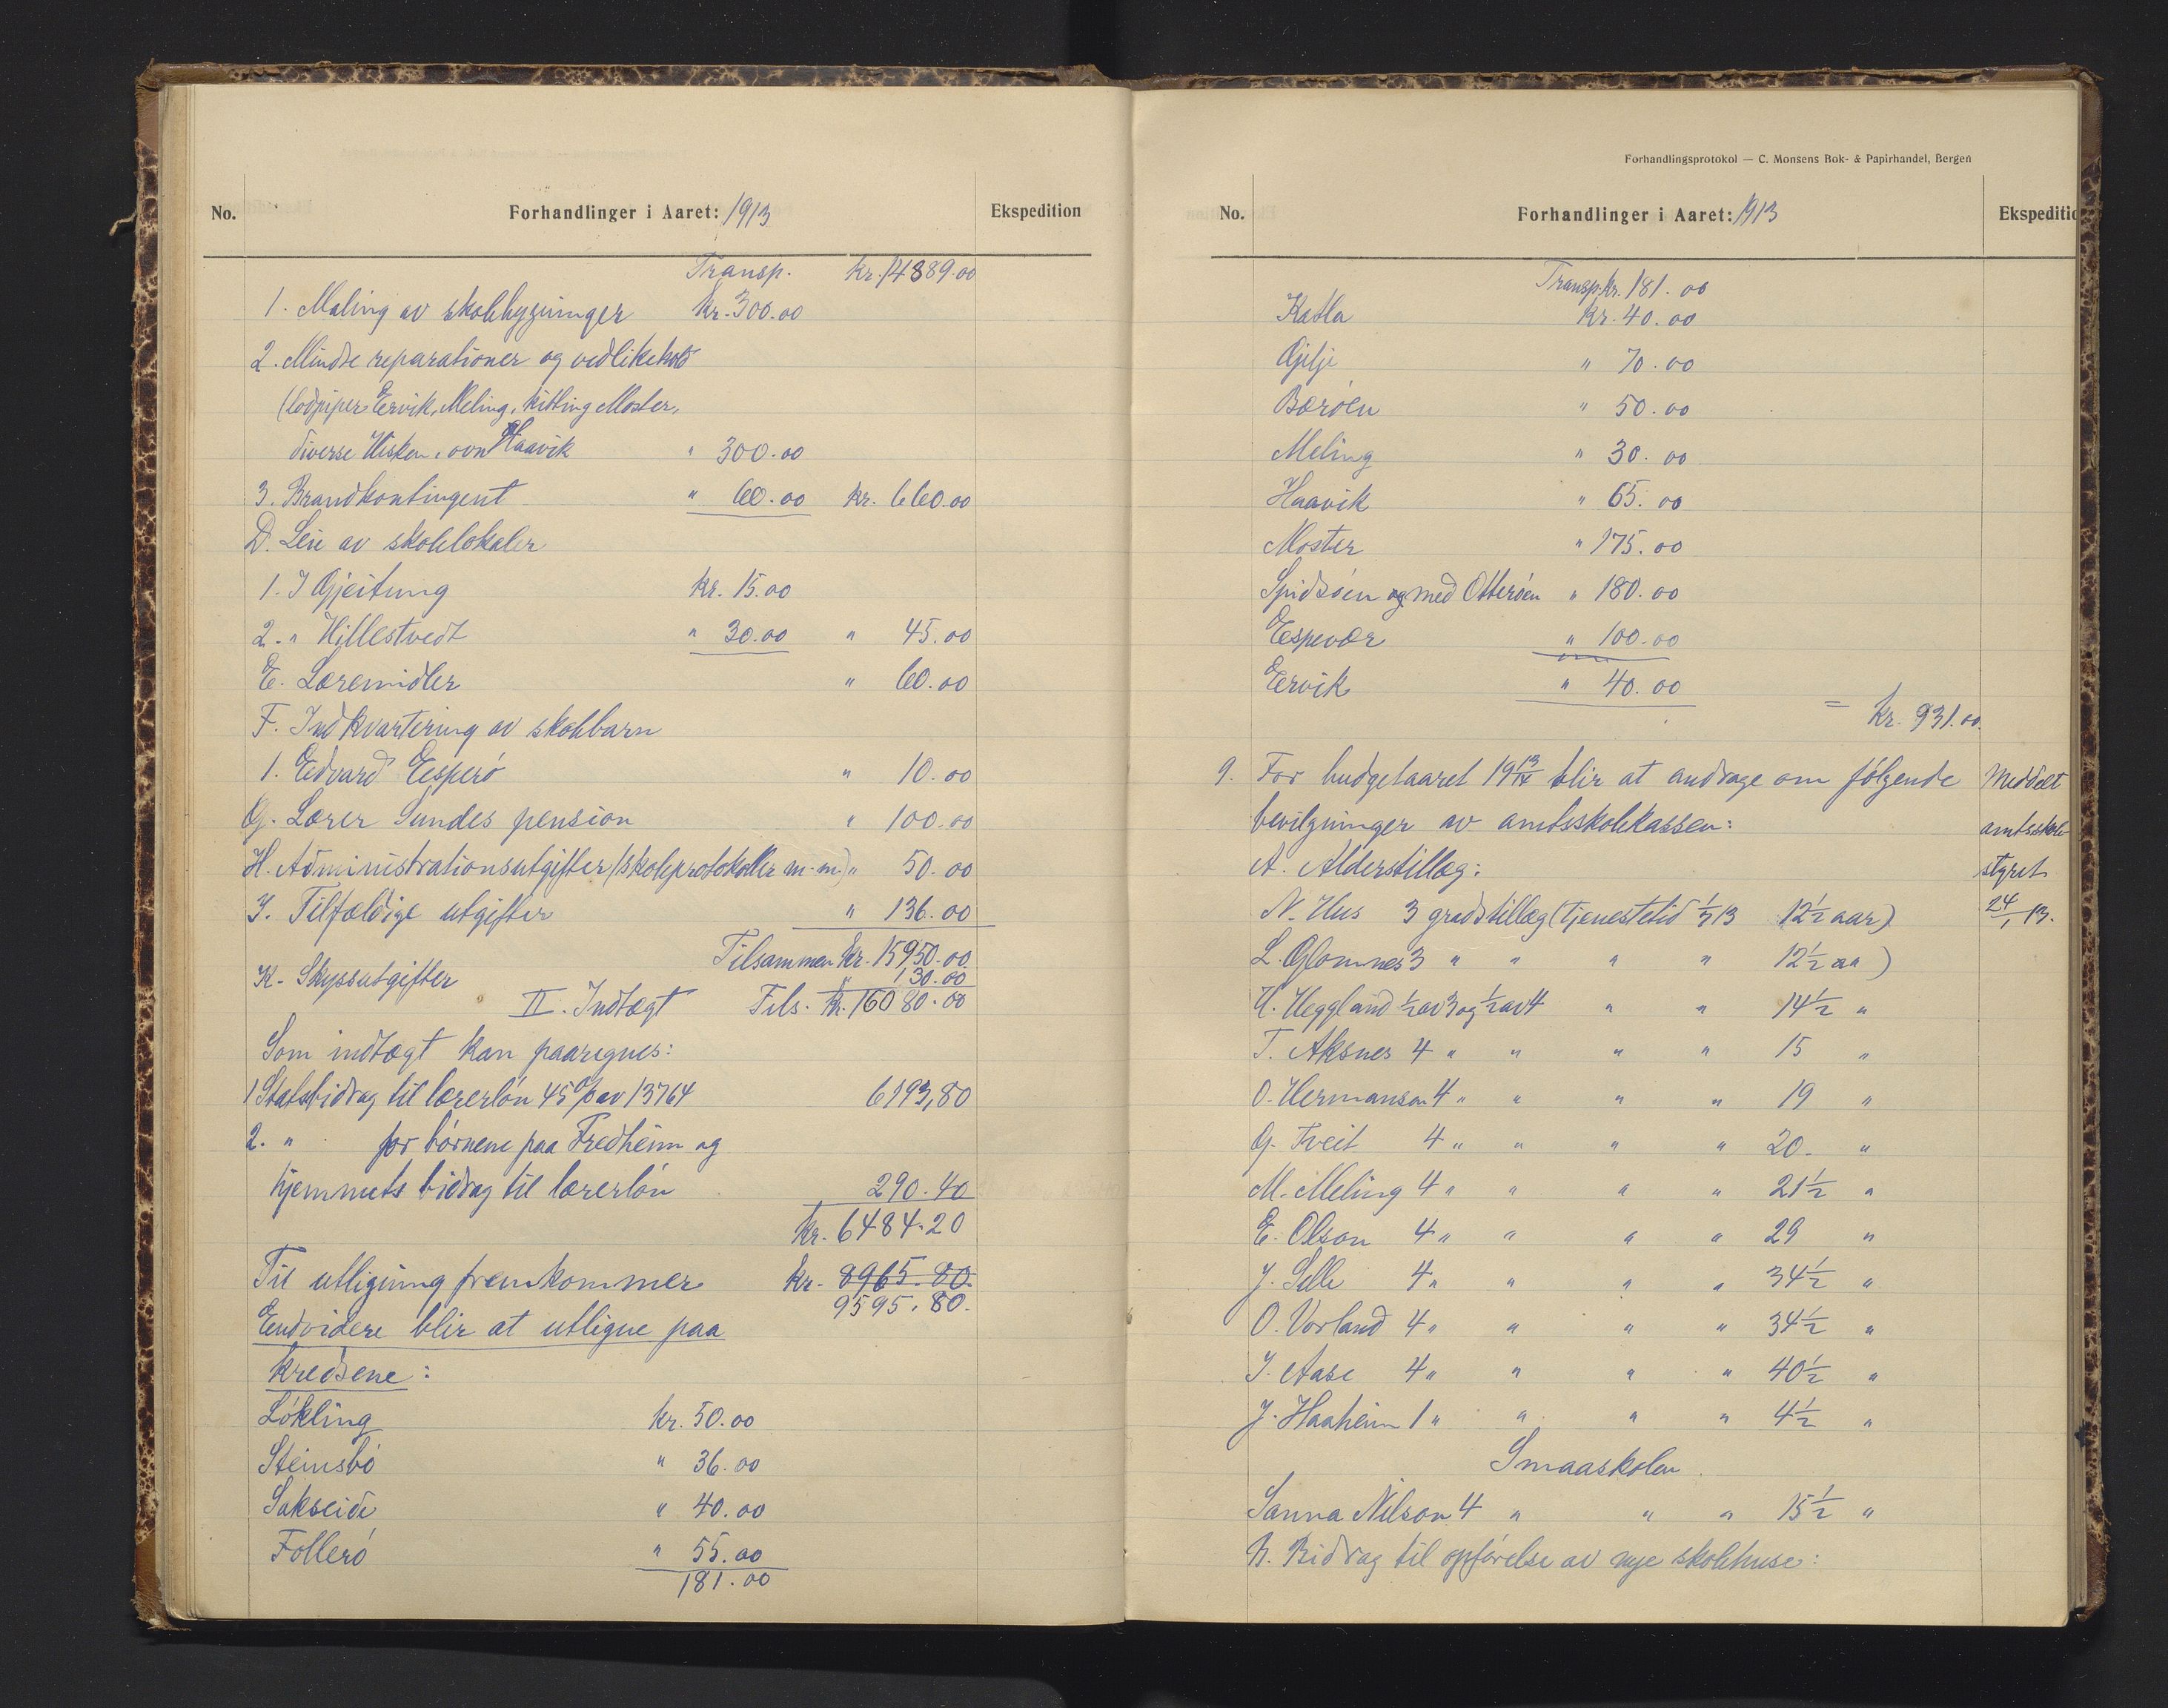 No. Forhandlinger i Aaret: 1913 Ekspedition
Transp. kr. 14889.00
1. Maling av skolebygninger kr. 300.00
2. Mindre reparationer og vedlikehold
(lodpiper Eervik, Meling, kitting Moster,
diverse Hisken, ovn Haavik " 300.00
3. Brandkontingent " 60.00 kr. 660.00
D. Leie av skolelokaler
1. I Gjeitung kr. 15.00
2. " Hillestvedt " 30.00 " 45.00
E. Læremidler " 60.00
F. Indkvartering av skolebarn
1. Edvard Eesperö " 10.00
G. Lærer Sundes pension " 100.00
H. Administrationsutgifter (skoleprotokoller m.m.) " 50.00
I. Tilfældige utgifter " 136.00
Tilsammen kr. 15950.00
K. Skyssutgifter " 130.00
II. Indtægt Tils. kr. 16080.00
Som indtægt kan paaregnes:
1 Statsbidrag til lærerlön 45% av 13764 6193,80
2. " for börnene paa Fredheim og
hjemmets bidrag til lærerlön 290.40
kr. 6484.20
Til utligning fremkommer kr. 8965.80.
9595.80.
Endvidere blir at utligne paa
kredsene:
Lökling kr. 50.00
Steinsbö " 36.00
Sakseide " 40.00
Follerö " 55.00
181.00
Forhandlingsprotokol — C. Monsens Bok- & Papirhandel, Bergen
No. Forhandlinger i Aaret: 1913 Ekspeditio
Transp. kr. 181.00
Katla kr. 40.00
Gjelje " 70.00
Bæröen " 50.00
Meling " 30.00
Haavik " 65.00
Moster " 175.00
Spidsöen og med Otteröen " 180.00
Eespevær " 100.00
Eervik " 40.00
= kr. 931.00.
9. For budgetaaret 19 13/14 blir at andrage om følgende Meddelt
bevilgninger av amtsskolekassen: amtsskole
A. Alderstillæg: styret
N. Hus 3 gradstillæg (tjenestetid 1/7 13 12 1/2 aar) 24/1 13.
L. Glomnes 3 " " " " 12 1/2 aa )
H. Heggland 1/2 av 3 og 1/2 av 4 " " 14 1/2 "
T. Aksnes 4 " " " " 15 "
O. Hermanson 4 " " " " 19 "
G. Tveit 4 " " " " 20. "
M. Meling 4 " " " " 21 1/2 "
E. Olson 4 " " " " 29 "
J. Selle 4 " " " " 34 1/2 "
O. Vorland 4 " " " " 34 1/2 "
I. Aase 4 " " " " 40 1/2 "
J. Haaheim 1 " " " " 4 1/2 "
Smaaskolen.
Sanna Nilson 4 " " " 15 1/2 "
B. Bidrag til opförelse av nye skolehuse: